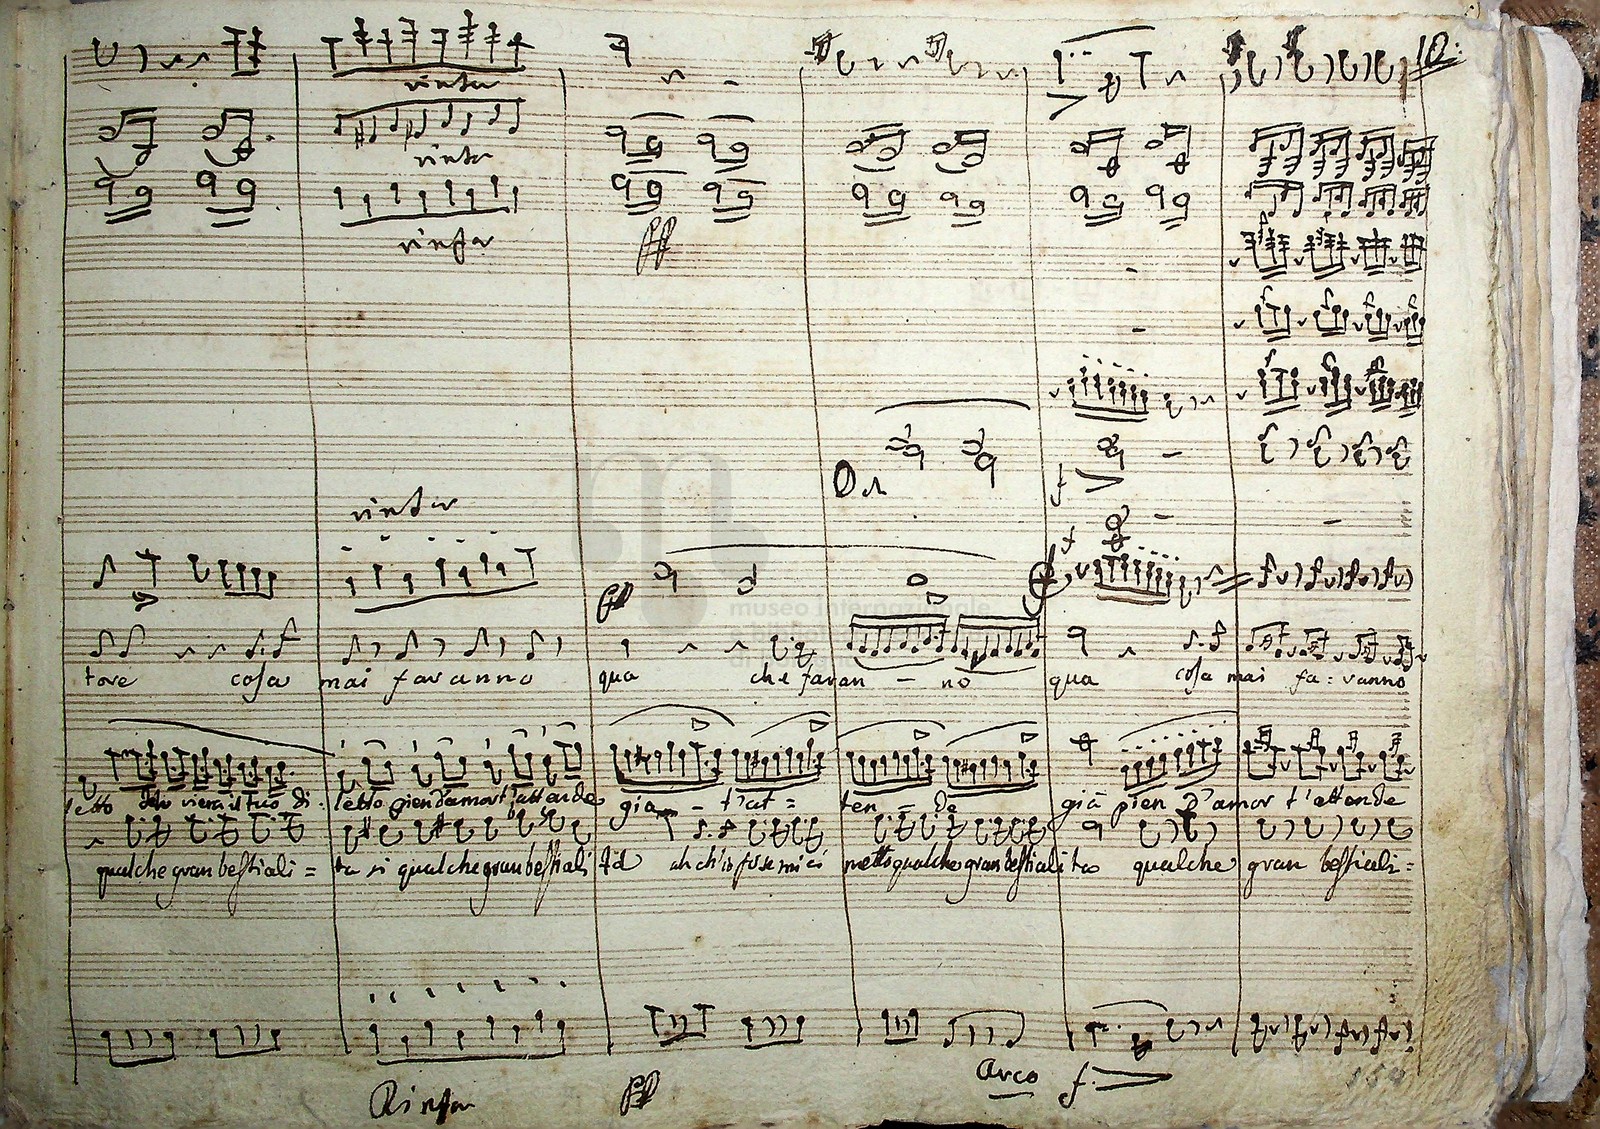 10:
rinfor
rinfor
rinfor
ff
f
rinfor
f
ff
museo internazionale
tore cosa mai faranno qua che faran - no qua cosa mai fa = ranno
letto verrà il tuo di = letto pien d'amor t'attende già - t'at = ten = de già pien d'amor t'attende
qualche gran bestiali = ta si qualche gran bestialità ah ch'io metto qualche gran bestialita qualche gran bestiali =
arco
f
Rinfor
ff